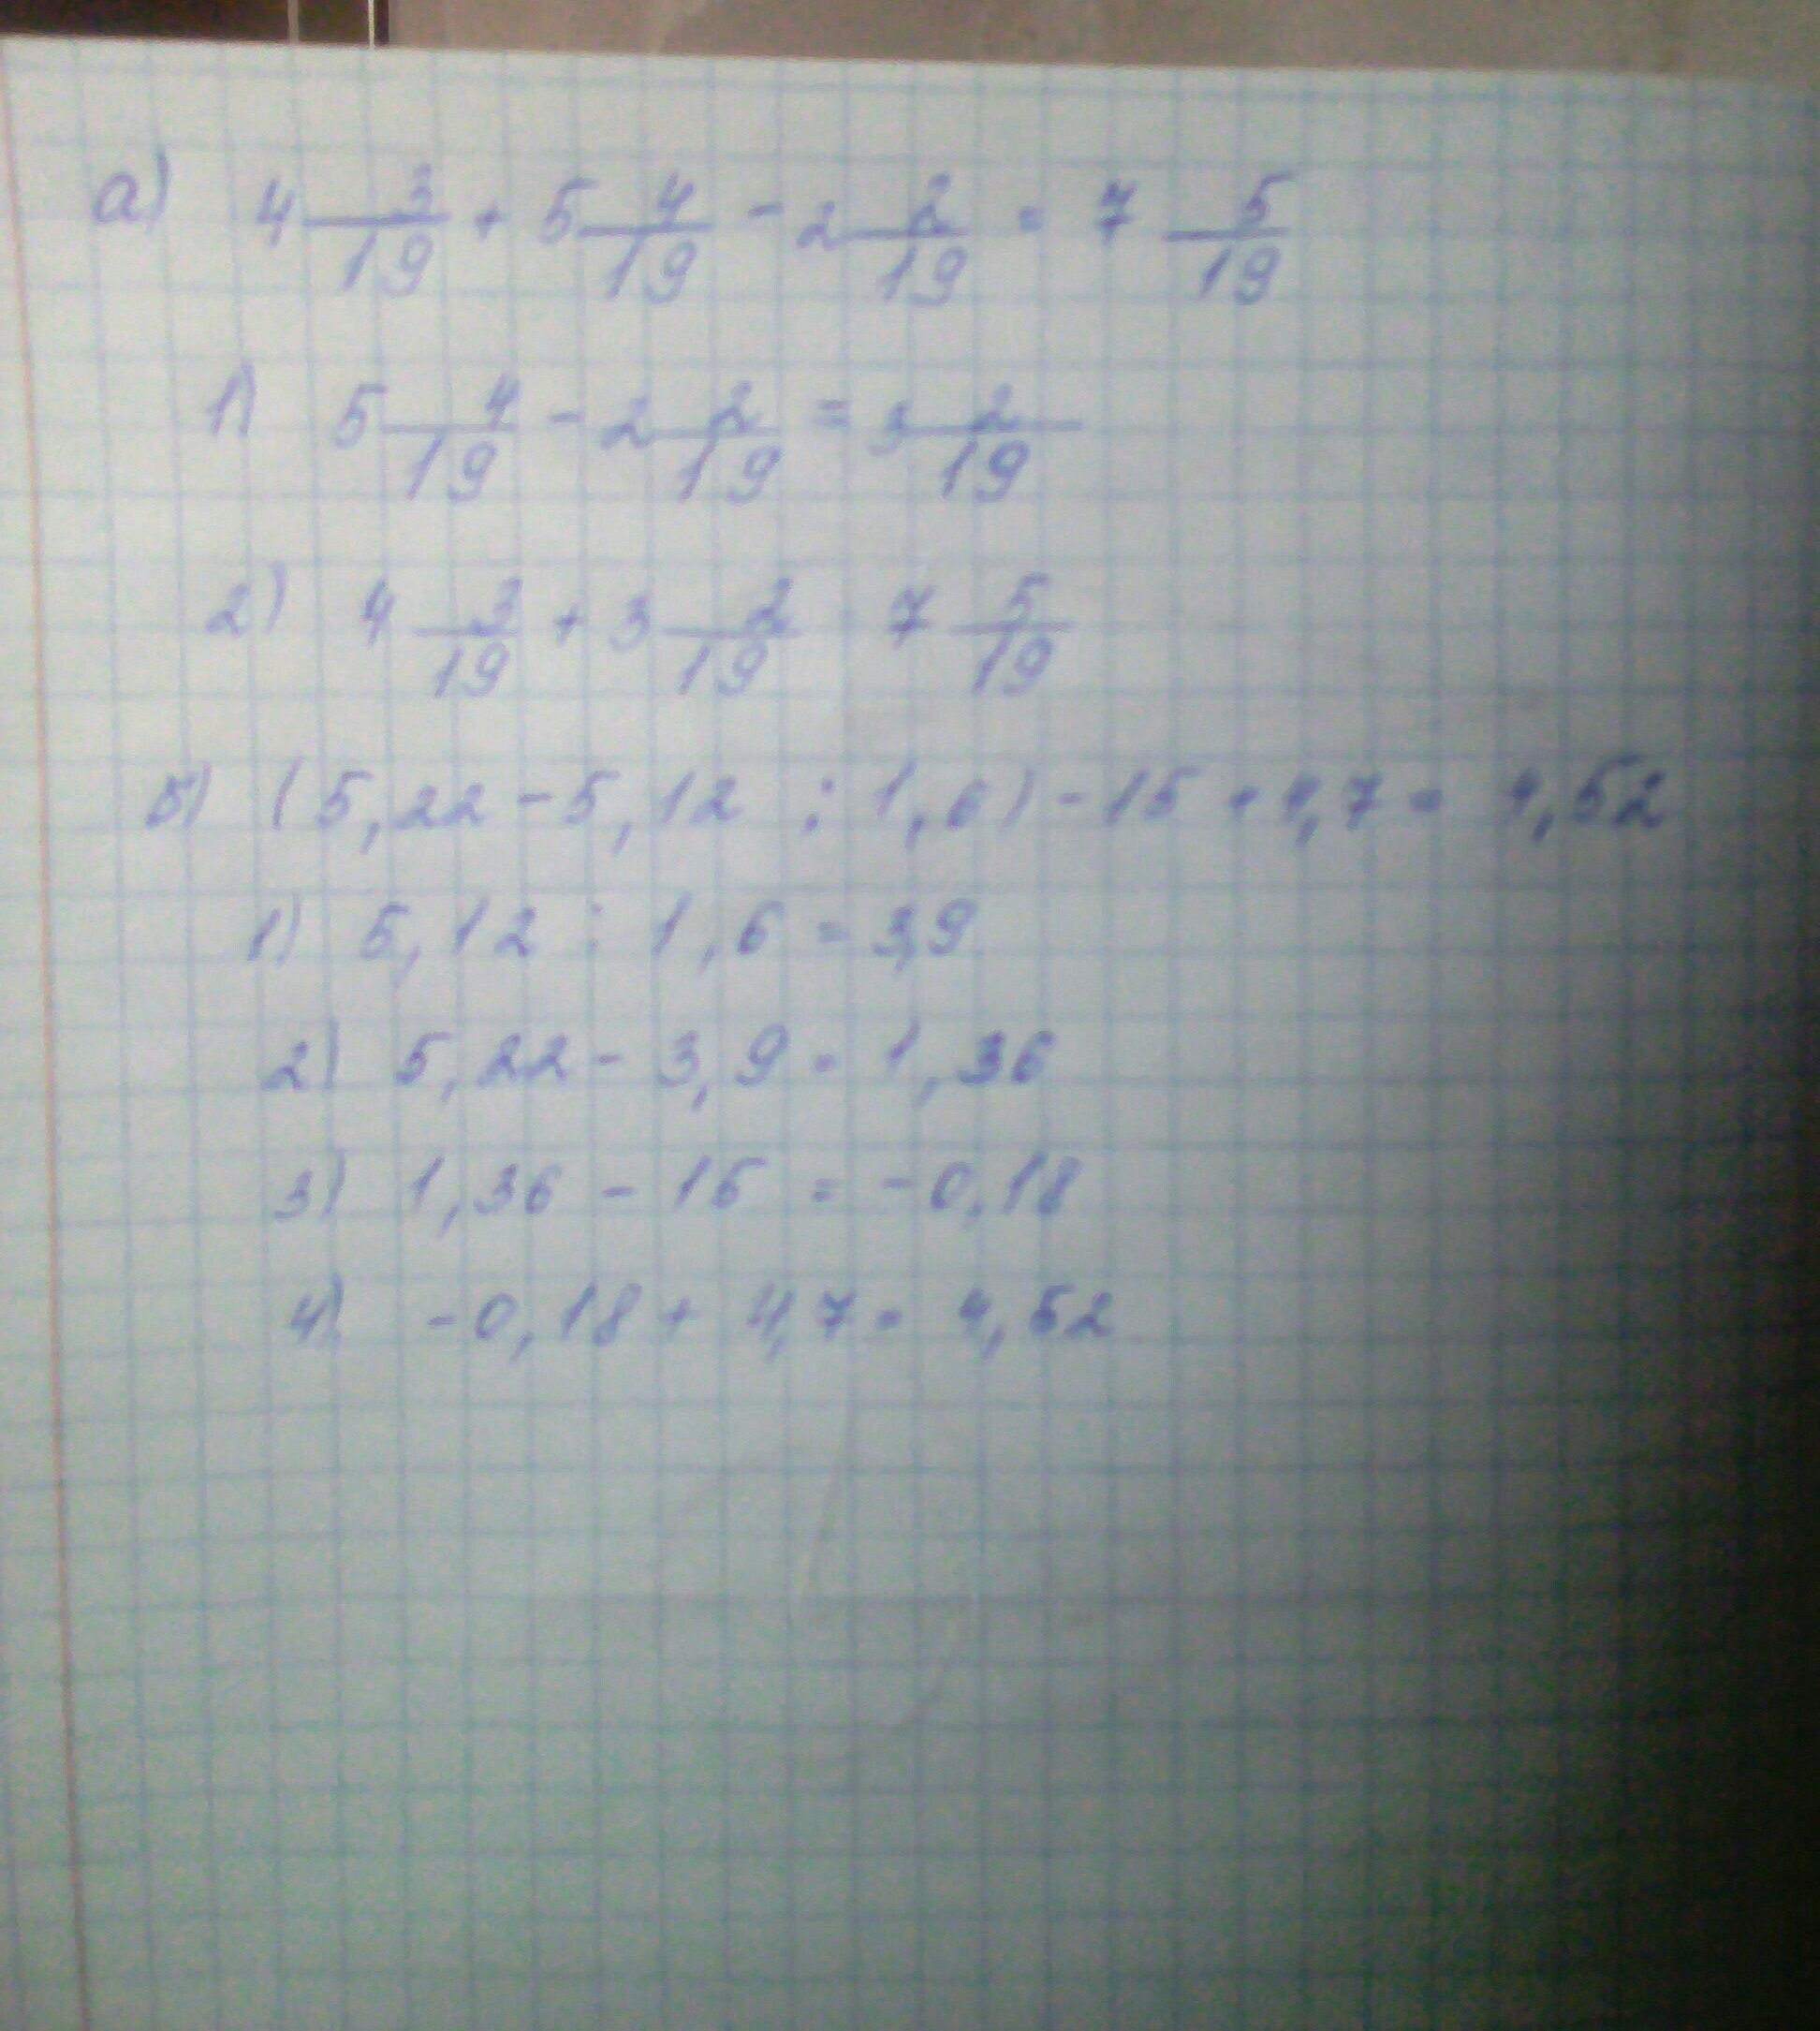 а) 4 3/19 + 5 4/19 - 2 2/19 = 7 5/19
1) 5 4/19 - 2 2/19 = 3 2/19
2) 4 3/19 + 3 2/19 = 7 5/19
б) (5,22 - 5,12 : 1,6) - 15 + 4,7 = 4,52
1) 5,12 : 1,6 = 3,9
2) 5,22 - 3,9 = 1,36
3) 1,36 - 15 = -0,18
4) -0,18 + 4,7 = 4,52